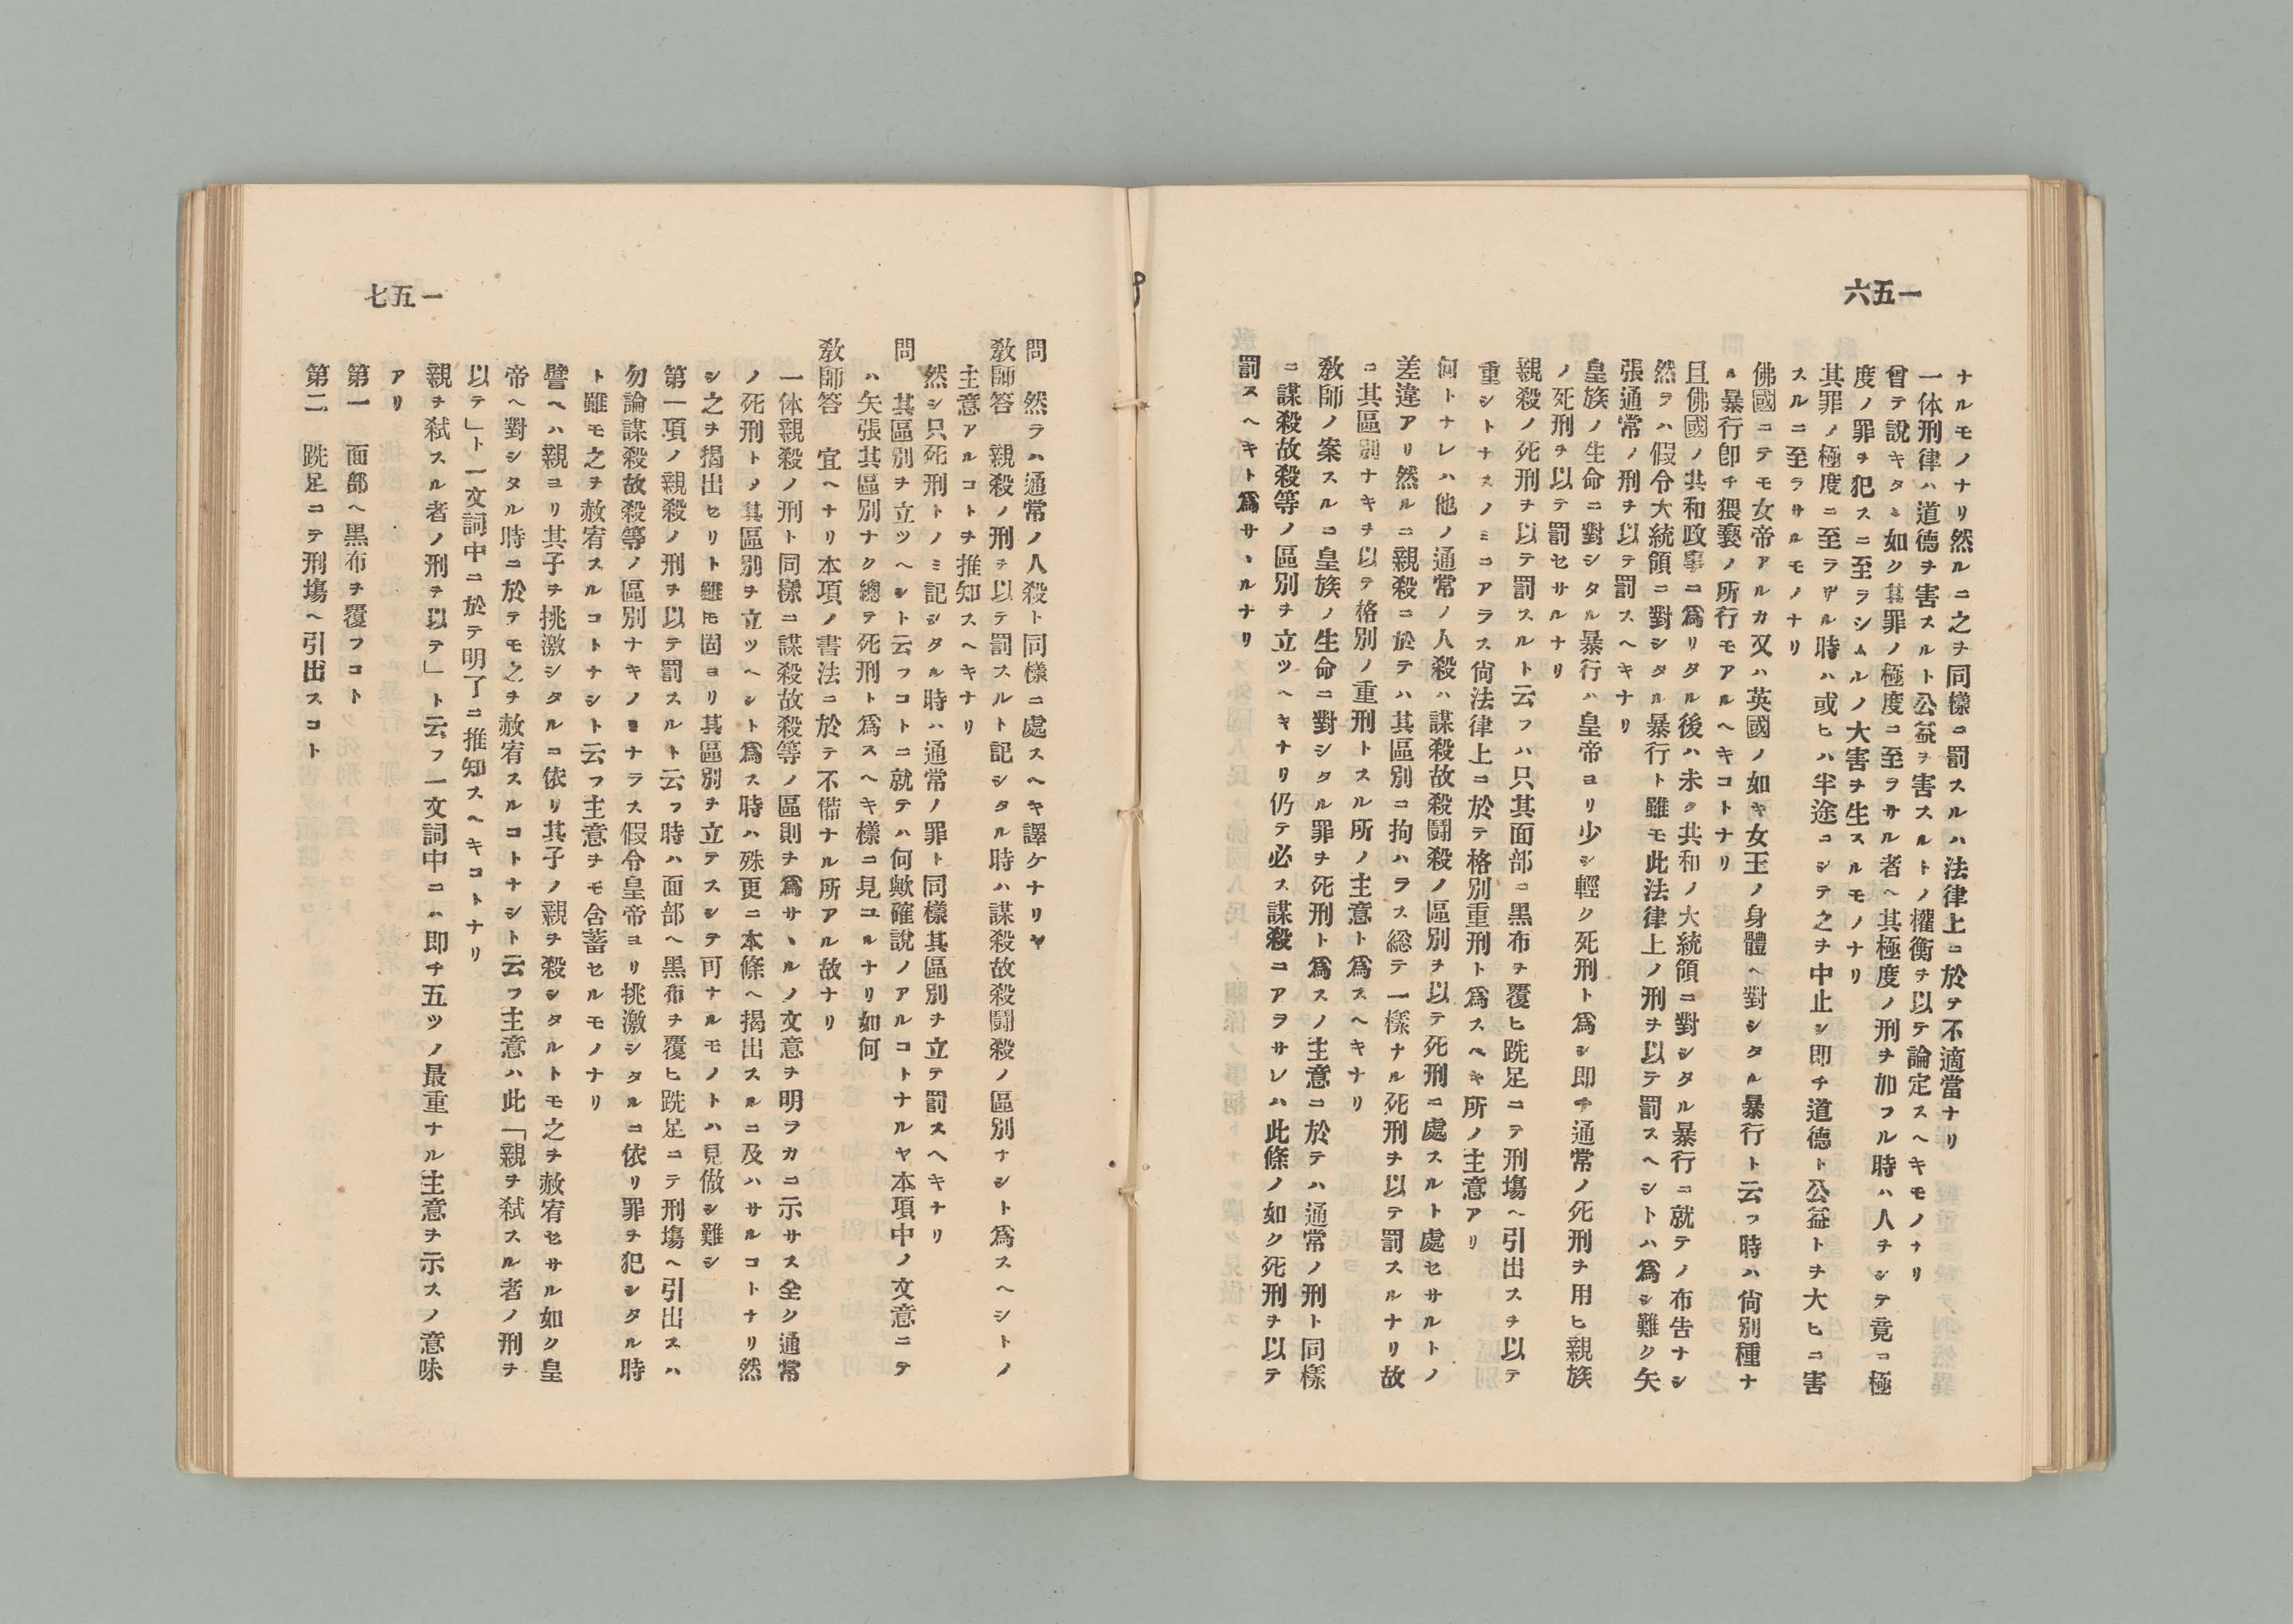 六五一
ナルモノナリ然ルニ之ヲ同樣ニ罰スルハ法律上ニ於テ不適當ナリ
一体刑律ハ道德ヲ害スルト公益ヲ害スルトノ權衡ヲ以テ論定スヘキモノナリ
曾テ說キタル如ク其罪ノ極度ニ至ラサル者ヘ其極度ノ刑ヲ加フル時ハ人ヲシテ竟ニ極
度ノ罪ヲ犯スニ至ラシムルノ大害ヲ生スルモノナリ
其罪ノ極度ニ至ラサル時ハ或ヒハ半途ニシテ之ヲ中止シ即チ道德ト公益トヲ大ヒニ害
スルニ至ラサルモノナリ
佛國ニテモ女帝アルカ又ハ英國ノ如キ女王ノ身體ヘ對シタル暴行ト云フ時ハ尙別種ナ
ル暴行卽チ猥褻ノ所行モアルヘキコトナリ
且佛國ノ共和政事ニ爲リタル後ハ未タ共和ノ大統領ニ對シタル暴行ニ就テノ布告ナシ
然ラハ假令大統領ニ對シタル暴行ト雖モ此法律上ノ刑ヲ以テ罰スヘシトハ爲シ難ク矢
張通常ノ刑ヲ以テ罰スヘキナリ
皇族ノ生命ニ對シタル暴行ハ皇帝ヨリ少シ輕ク死刑ト爲シ即チ通常ノ死刑ヲ用ヒ親族
ノ死刑ヲ以テ罰セサルナリ
親殺ノ死刑ヲ以テ罰スルト云フハ只其面部ニ黑布ヲ覆ヒ跣足ニテ刑塲ヘ引出スヲ以テ
重シトナスノミニアラス尙法律上ニ於テ格別重刑ト爲スヘキ所ノ主意アリ
何トナレハ他ノ通常ノ人殺ハ謀殺故殺鬪殺ノ區別ヲ以テ死刑ニ處スルト處セサルトノ
差違アリ然ルニ親殺ニ於テハ其區別ニ拘ハラス総テ一樣ナル死刑ヲ以テ罰スルナリ故
ニ其區別ナキヲ以テ格別ノ重刑トスル所ノ主意ト爲スヘキナリ
敎師ノ案スルニ皇族ノ生命ニ對シタル罪ヲ死刑ト爲スノ主意ニ於テハ通常ノ刑ト同樣
ニ謀殺故殺等ノ區別ヲ立ツヘキナリ仍テ必ス謀殺ニアラサレハ此條ノ如ク死刑ヲ以テ
罰スヘキト爲サヽルナリ
七五一
問　然ラハ通常ノ人殺ト同樣ニ處スヘキ譯ケナリヤ
敎師答　親殺ノ刑ヲ以テ罰スルト記シタル時ハ謀殺故殺鬪殺ノ區別ナシト爲スヘシトノ
主意アルコトヲ推知スヘキナリ
然シ只死刑トノミ記シタル時ハ通常ノ罪ト同樣其區別ヲ立テ罰スヘキナリ
問　其區別ヲ立ツヘシト云フコトニ就テハ何歟確說ノアルコトナルヤ本項中ノ文意ニテ
ハ矢張其區別ナク總テ死刑ト爲スヘキ樣ニ見ユルナリ如何
敎師答　宜ヘナリ本項ノ書法ニ於テ不備ナル所アル故ナリ
一体親殺ノ刑ト同樣ニ謀殺故殺等ノ區則ヲ爲サヽルノ文意ヲ明ラカニ示サス全ク通常
ノ死刑トノ其區別ヲ立ツヘシト爲ス時ハ殊更ニ本條ヘ揭出スルニ及ハサルコトナリ然
シ之ヲ揭出セリト雖モ固ヨリ其區別ヲ立テスシテ可ナルモノトハ見倣シ難シ
第一項ノ親殺ノ刑ヲ以テ罰スルト云フ時ハ面部ヘ黑布ヲ覆ヒ跣足ニテ刑塲ヘ引出スハ
勿論謀殺故殺等ノ區別ナキノミナラス假令皇帝ヨリ挑激シタルニ依リ罪ヲ犯シタル時
ト雖モ之ヲ赦宥スルコトナシト云フ主意ヲモ含蓄セルモノナリ
譬ヘハ親ヨリ其子ヲ挑激シタルニ依リ其子ノ親ヲ殺シタルトモ之ヲ赦宥セサル如ク皇
帝ヘ對シタル時ニ於テモ之ヲ赦宥スルコトナシト云フ主意ハ此「親ヲ弑スル者ノ刑ヲ
以テ」ト一文詞中ニ於テ明了ニ推知スヘキコトナリ
親ヲ弑スル者ノ刑ヲ以テ」ト云フ一文詞中ニハ即チ五ツノ最重ナル主意ヲ示スノ意味
アリ
第一　面部ヘ黑布ヲ覆フコト
第二　跣足ニテ刑塲ヘ引出スコト